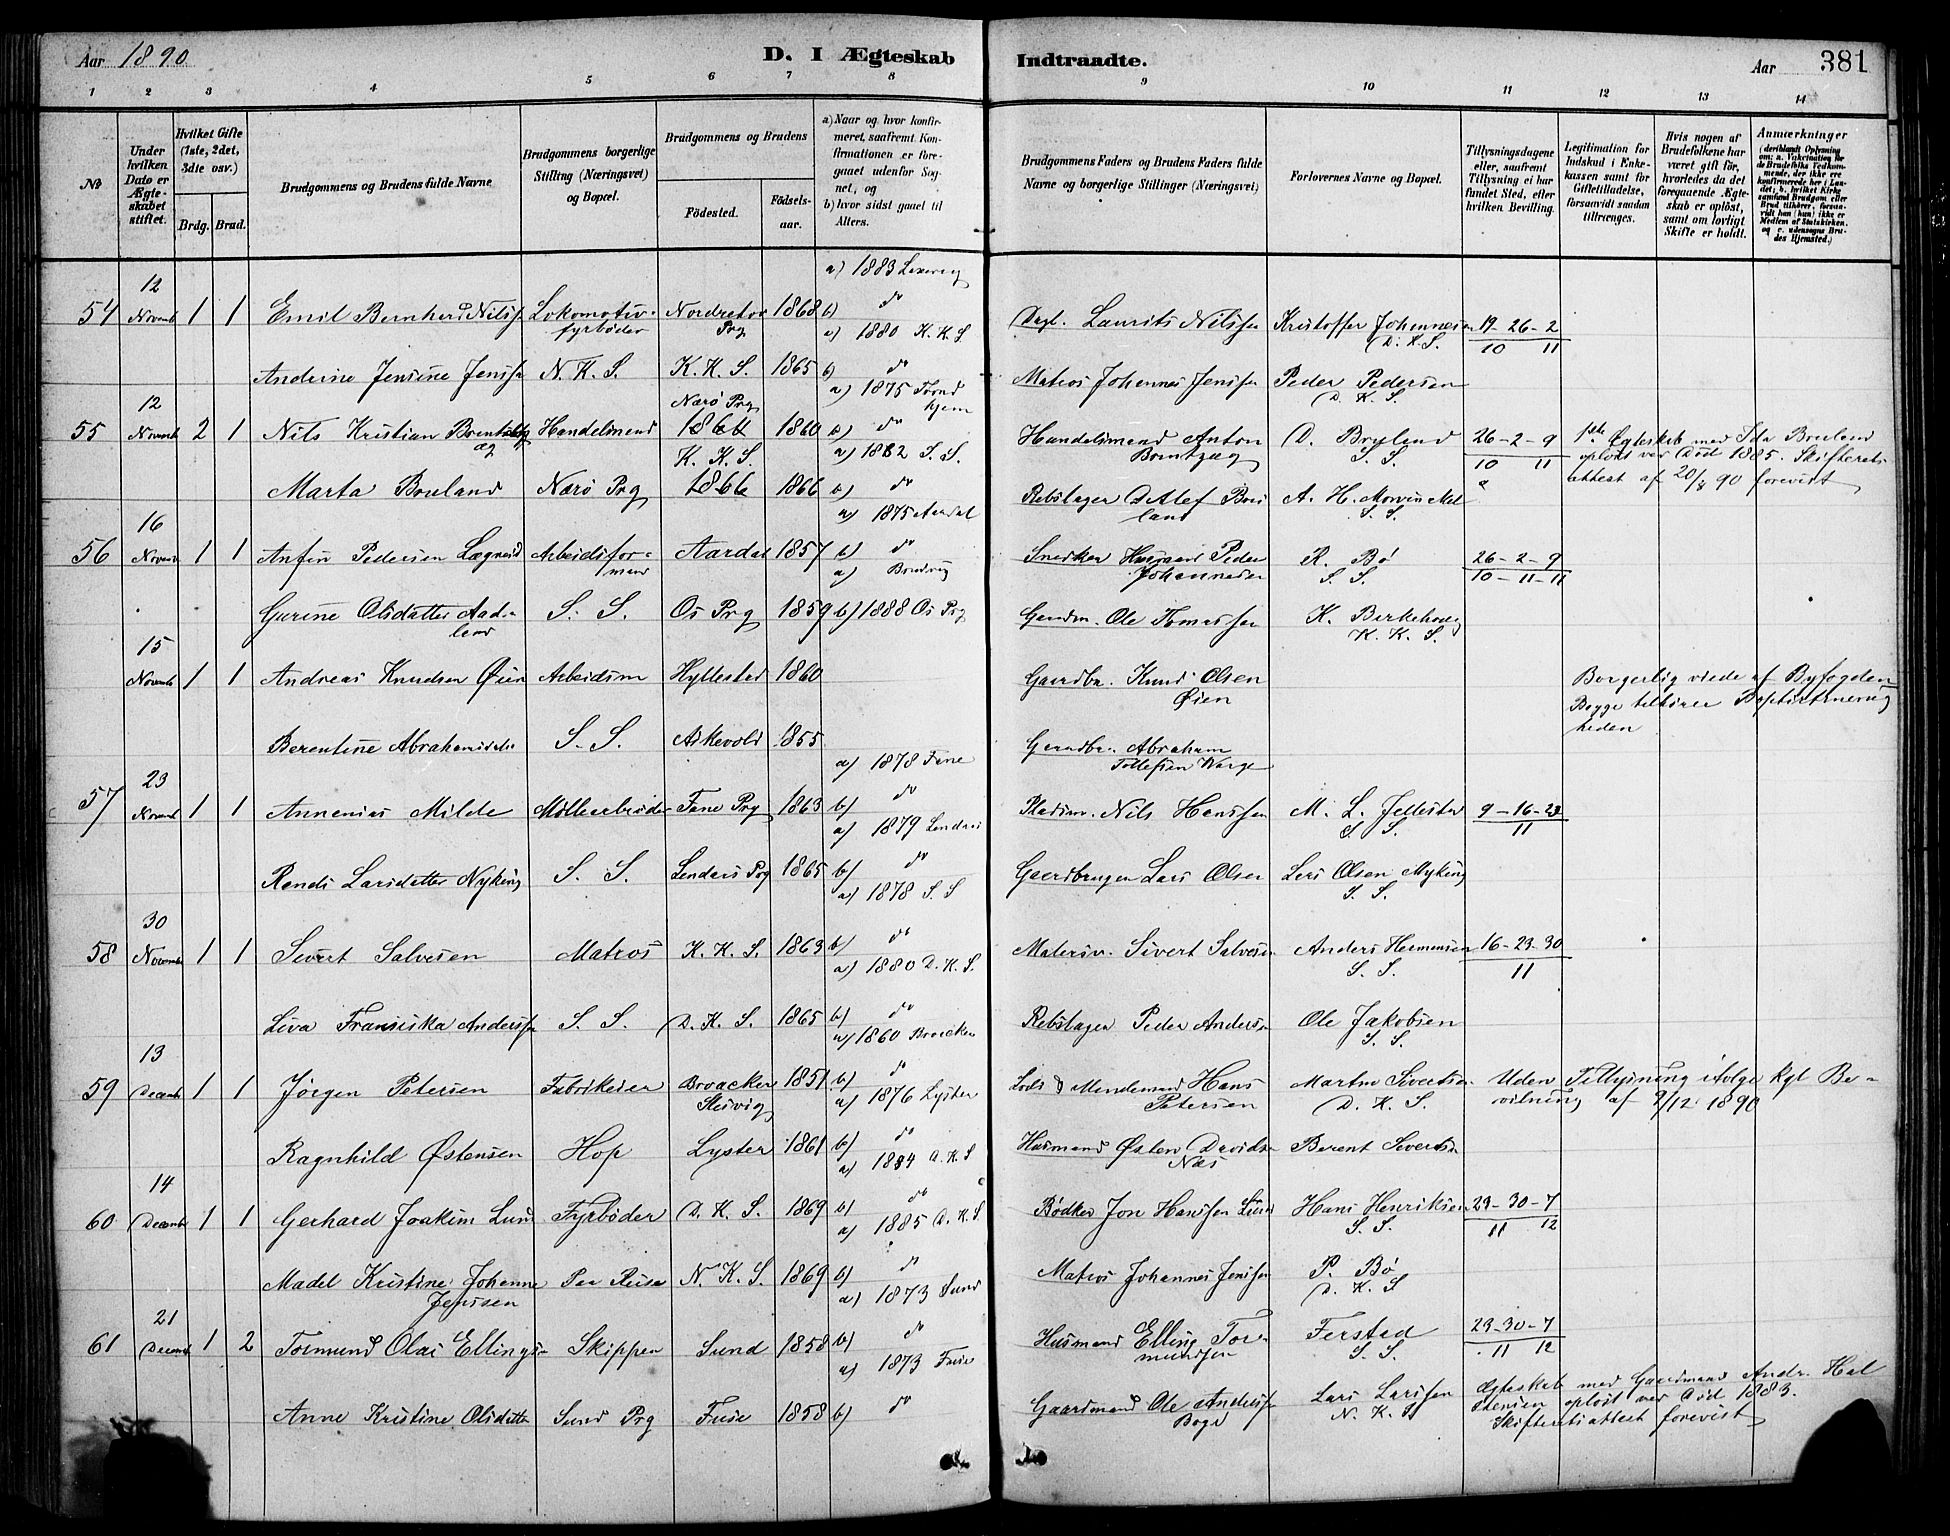 Aar 1890
D. I Ægteskab
Indtraadte.
Aar
381
1 2 3 4 5 6 7 8 9 10 11 12 13 14
№
Under hvilken Dato er Ægteskabet stiftet.
Hvilket Gifte (1ste, 2det, 3dte osv.)
Brdg. Brud.
Brudgommens og Brudens fulde Navne
Brudgommens borgerlige Stilling (Næringsvei) og Bopæl.
Brudgommens og Brudens
Fødested.
Fødselsaar.
a) Naar og hvor konfirmeret, saafremt Konfirmationen er foregaaet udenfor Sognet, og
b) hvor sidst gaaet til Alters.
Brudgommens Faders og Brudens Faders fulde Navne og borgerlige Stillinger (Næringsvei)
Forlovernes Navne og Bopæl.
Tillysningsdagene eller, saafremt Tillysning ei har fundet Sted, efter hvilken Bevilling.
Legitimation for Indskud i Enkekassen samt for Giftetilladelse, forsaavidt saadan tiltrænges.
Hvis nogen af Brudefolkene har været gift før, hvorledes da det foregaaende Ægteskab er opløst, samt om lovligt Skifte er holdt.
Anmærkninger
54 12 Novemb 1 1 Emil Bernherd Nilssen Lokomotivfyrbøder 1868 a) 1883 b) do
Dagl. Laurits Nilssen Kristoffer Johannesen D. K. S. 19-26-2 10 11
Anderine Jensine Jenssen N. K. S. K. K. S. 1865 a) 1880 K. K. S b) do
Matros Johannes Jenssen Peder Pedersen D. K. S.
55 12 Novemb 2 1 Nils Kristian Handelsmand Nærø Prg 1860 a) 1875 Trondhjem b) do
Handelsmand Anton D. Bruland S. S. 26-2-9 10 11
1ste Ægteskab med Ida Bruland opløst ved Død 1885. Skifterets attest af 20/8 90 forevist
Marta Bruland Nærø Prg K. K. S. 1866 1866 a) 1882 S. S. b) do
Rebslager Detlef Bruland A. H. S. S.
56 16 Novemb 1 1 Anfin Pedersen Lægreid Arbeidsformand Aardal 1857 a) 1875 Aardal b) do
Snedker Husmand Peder Johannesen R. Bø S. S. 26-2-9 10-11-11
Gurine Olsdatter Aadland S. S. Os Prg 1859 a) b) 1888 Os Prg
Gaardm. Ole Tomassen K. Birkehoug K. K. S.
15 Novemb 1 1 Andreas Knudsen Øien Arbeidsm Hyllestad 1860
Gaardbr. Knud Olsen Øien
Borgerlig viede af Byfogden Begge tilhører Baptistmenigheden
Berentine Abrahamsdtr S. S. Askevold 1855
Gaardbr. Abraham Tollefsen Warge
57 23 Novemb 1 1 Annenias Milde Møllearbeider Fane Prg 1863 a) 1878 Fane b) do
Pladsm. Nils Hanssen M. L. Fjellestad S. S. 9-16-23 11
Randi Larsdatter Myking S. S. Lindaas Prg 1865 a) 1879 Lindaas b) do
Gaardbruger Lars Olsen Lars Olsen Myking S. S.
58 30 Novemb 1 1 Sivert Salvesen Matros K. K. S. 1863 a) 1878 S. S b) do
Sivert Salvesen Anders Hermansen S. S. 16-23-30 11
Liva Fransiska Anderssen S. S. D. K. S. 1865 a) 1880 D. K. S. b) do
Rebslager Peder Anderssen Ole Jakobsen S. S.
59 13 Decemb 1 1 Jørgen Petersen Fabrikeier Broacker Slesvig 1851 a) 1860 Broacker b) do
Lods & Hans Petersen Martin Sivertsen D. K. S. Uden Tillysning ifølge Kgl Bevilning af 9/12 1890
Ragnhild Østensen Hop Lyster 1861 a) 1876 Lyster b) do
Husmand Østen Davidsen Næs Berent Sivertsen
60 14 Decemb 1 1 Gerhard Joakim Lund Fyrbøder D. K. S. 1869 a) 1884 D. K. S b) do
Bødker Jon Hanssen Lund Hans Henriksen S. S. 23-30-7 11 12
Madel Kristine Johanne Jenssen N. K. S. 1869 a) 1885 D. K. S. b) do
Matros Johannes Jenssen P. Bø D. K. S
61 21 Decemb 1 2 Tormund Olai Ellingsen Skipper Sund 1858 a) 1873 Sund b) do
Husmand Elling Tormundsen Ferstad S. S. 23-30-7 11 12
Anne Kristine Olsdatter Sund Prg Fuse 1858 a) 1873 Fuse b) do
Gaardmand Ole Anderssen Boge Lars Larssen N. K. S
Ægteskab med Gaardmand Andr. Halstensen opløst ved Død 1883. Skifteretsattest forevist